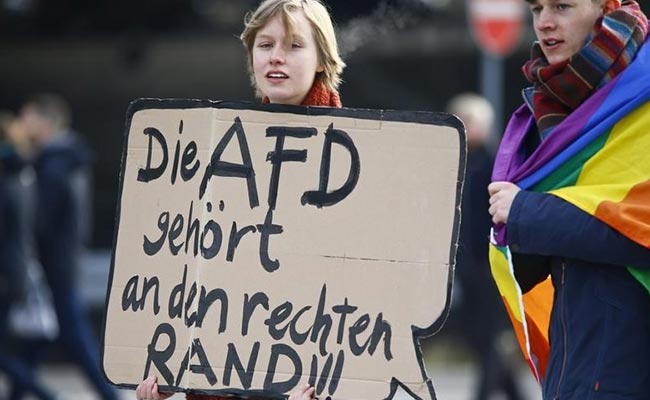 Die AFD
gehört
an den rechten
RAND!!!